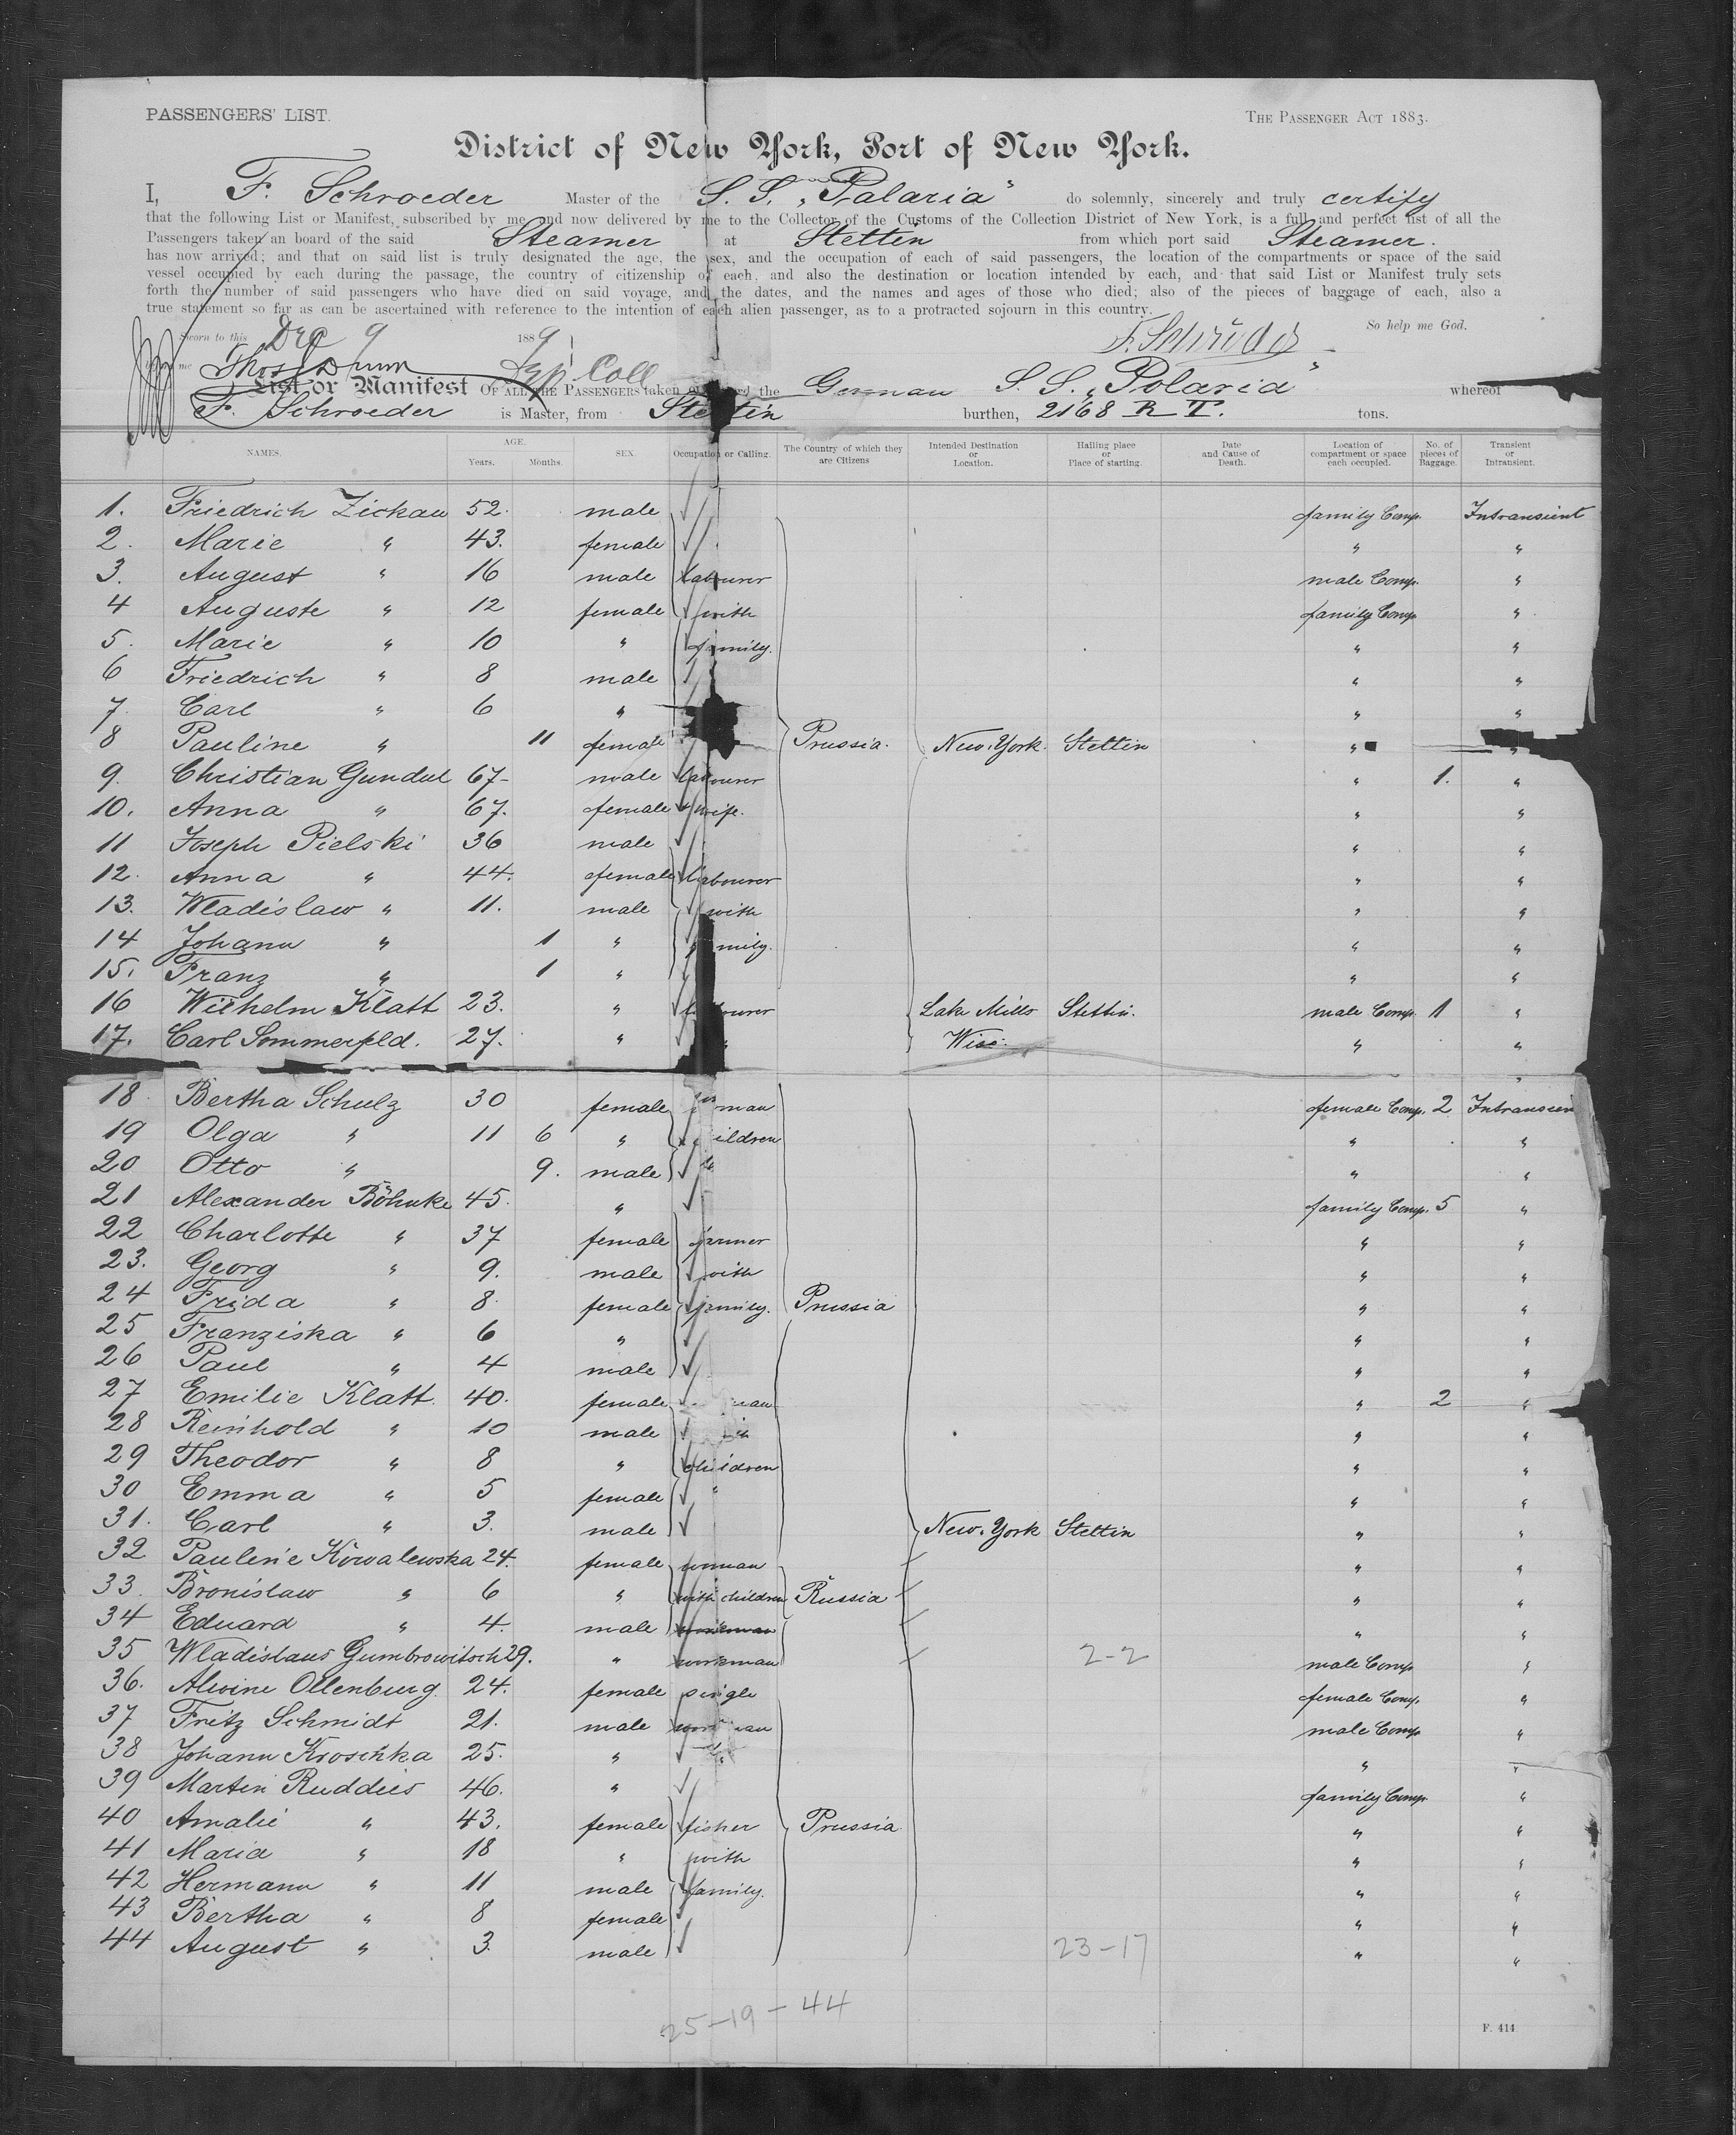 PASSENGERS' LIST. THE PASSENGER ACT 1883.
District of New York, Port of New York.
I, F. Schroeder Master of the S. S. „Polaria" do solemnly, sincerely and truly certify
that the following List or Manifest, subscribed by me and now delivered by me to the Collector of the Customs of the Collection District of New York, is a full and perfect list of all the
Passengers taken an board of the said Steamer at Stettin from which port said Steamer.
has now arrived; and that on said list is truly designated the age, the sex, and the occupation of each of said passengers, the location of the compartments or space of the said
vessel occupied by each during the passage, the country of citizenship of each, and also the destination or location intended by each, and that said List or Manifest truly sets
forth the number of said passengers who have died on said voyage, and the dates, and the names and ages of those who died; also of the pieces of baggage of each, also a
true statement so far as can be ascertained with reference to the intention of each alien passenger, as to a protracted sojourn in this country.
Sworn to this Dec 9 1889 F. Schröder So help me God.
me Thos Drum Dep Coll
List or Manifest OF ALL THE PASSENGERS taken on board the German S. S. „Polaria" whereof
F. Schroeder is Master, from Stettin burthen, 2168 R. T. tons.
NAMES. AGE. Years. Months. SEX. Occupation or Calling. The Country of which they are Citizens Intended Destination or Location. Hailing place or Place of starting. Date and Cause of Death. Location of compartment or space each occupied. No. of pieces of Baggage. Transient or Intransient.
1. Friedrich Zickau 52. male family Comp. Intransient
2. Marie " 43. female " "
3. August " 16 male labourer male Comp. "
4 Auguste " 12 female with family Comp "
5. Marie " 10 " family. " "
6 Friedrich " 8 male " "
7. Carl " 6 " " "
8 Pauline " 11 female Prussia. New-York. Stettin " "
9. Christian Gundul 67- male labourer " 1. "
10. Anna " 67. female wife. " "
11 Joseph Pielski 36 male " "
12. Anna " 44. female labourer " "
13. Wladislaw " 11. male with " "
14 Johann " 1 " family. " "
15. Franz " 1 " " "
16 Wilhelm Klatt 23. " labourer Lake Mills Stettin. male Comp. 1 "
17. Carl Sommerfeld. 27. " " Wisc. " "
18 Bertha Schulz 30 female woman female Comp. 2 Intransien
19 Olga " 11 6 " children " "
20 Otto " 9. male " "
21 Alexander Böhnke 45. " family Comp. 5 "
22 Charlotte " 37 female farmer " "
23. Georg " 9. male with " "
24 Frida " 8. female family. Prussia " "
25 Franziska " 6 " " "
26 Paul " 4 male " "
27 Emilie Klatt. 40. female woman " 2 "
28 Reinhold " 10 male with " "
29 Theodor " 8 " children " "
30 Emma " 5 female " " "
31. Carl " 3. male New-York Stettin " "
32 Pauline Kowalewska 24. female woman " "
33. Bronislaw " 6 " with children Russia " "
34 Eduard " 4. male workman " "
35 Wladislaus Gumbrowitsch 29. " workman 2-2 male Comp "
36. Alwine Ollenburg 24. female single female Comp. "
37 Fritz Schmidt 21. male workman male Comp "
38 Johann Kroschka 25. " " " "
39 Martin Ruddies 46. " family Comp. "
40 Amalie " 43. female fisher Prussia " "
41 Maria " 18 " with " "
42 Hermann " 11 male family. " "
43 Bertha " 8 female " "
44 August " 3. male 23-17 " "
25-19-44
F. 414